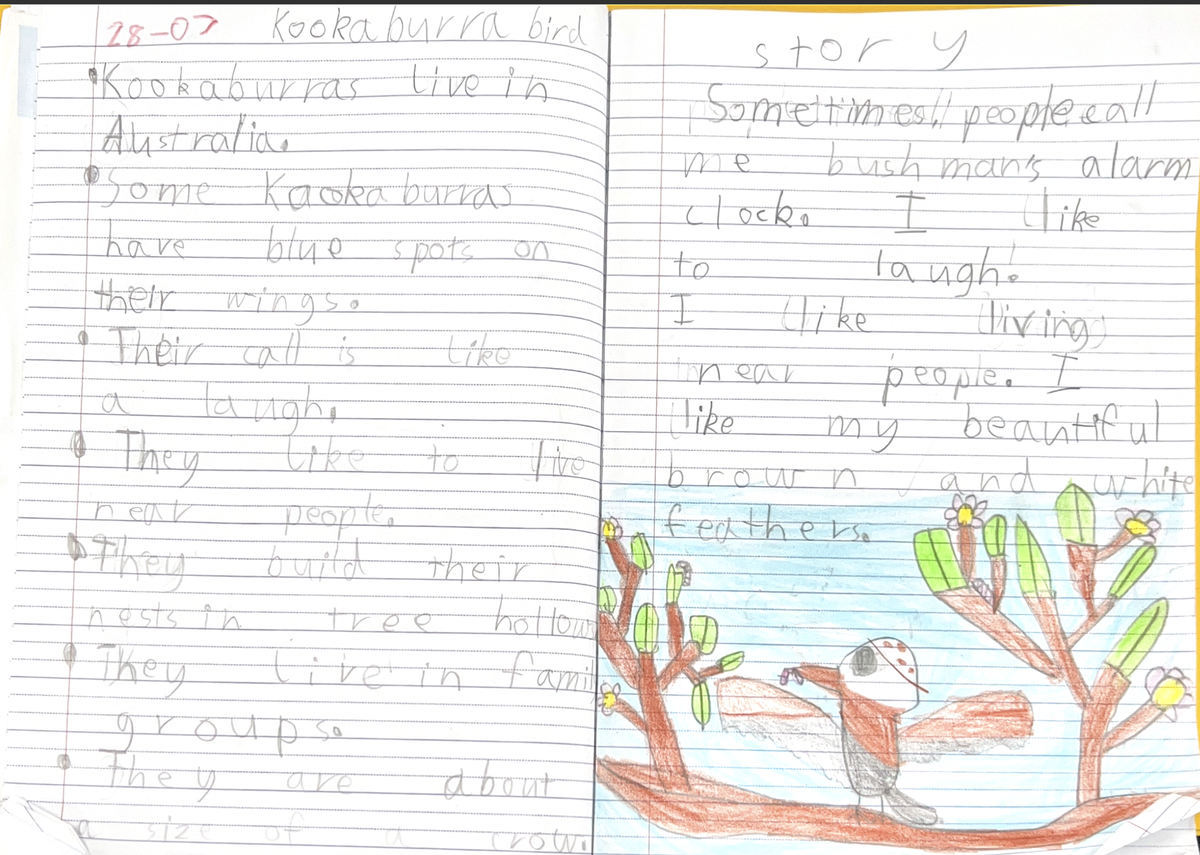 28-07 Kookaburra bird
• Kookaburras live in
Australia.
• Some Kaookaburras
have blue spots on
their wings.
• Their call is like
a laugh.
• They like to live
near people.
• They build their
nests in tree hollow
• They live in famil
groups.
• They are about
a size of a crow.
story
Sometimes people call
me bush man's alarm
clock. I like
to laugh.
I like living
near people. I
like my beautiful
brown and white
feathers.